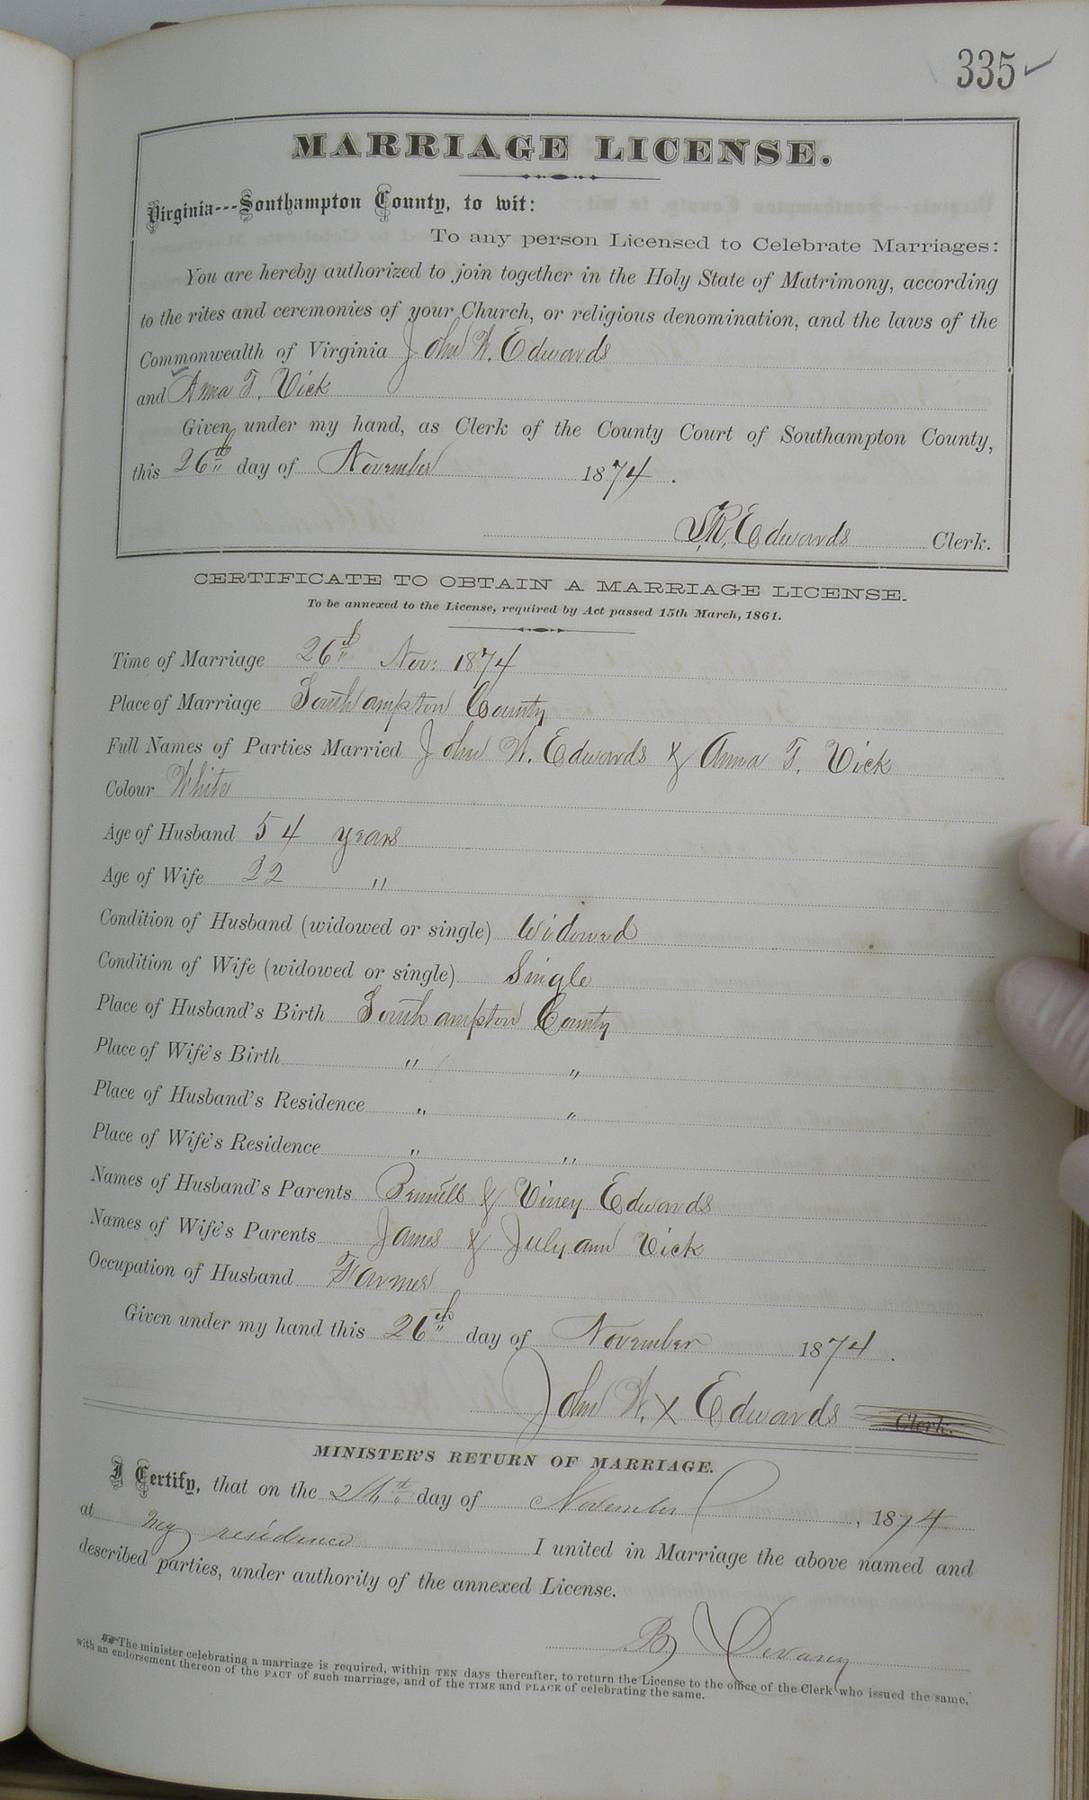 335 ✓
MARRIAGE LICENSE.
Virginia---Southampton County, to wit:
To any person Licensed to Celebrate Marriages:
You are hereby authorized to join together in the Holy State of Matrimony, according
to the rites and ceremonies of your Church, or religious denomination, and the laws of the
Commonwealth of Virginia John W. Edwards
and Anna T. Vick
Given under my hand, as Clerk of the County Court of Southampton County,
this 26th day of November 1874.
Edwards Clerk.
CERTIFICATE TO OBTAIN A MARRIAGE LICENSE.
To be annexed to the License, required by Act passed 15th March, 1861.
Time of Marriage 26th Nov: 1874
Place of Marriage Southampton County
Full Names of Parties Married John W. Edwards & Anna T. Vick
Colour White
Age of Husband 54 years
Age of Wife 22 "
Condition of Husband (widowed or single) Widowed
Condition of Wife (widowed or single) Single
Place of Husband's Birth Southampton County
Place of Wife's Birth " "
Place of Husband's Residence " "
Place of Wife's Residence " "
Names of Husband's Parents & Viney Edwards
Names of Wife's Parents James & July ann Vick
Occupation of Husband Farmer
Given under my hand this 26th day of November 1874.
John W. x Edwards Clerk.
MINISTER'S RETURN OF MARRIAGE.
I Certify, that on the day of November, 1874
at my residence I united in Marriage the above named and
described parties, under authority of the annexed License.
☞ The minister celebrating a marriage is required, within TEN days thereafter, to return the License to the office of the Clerk who issued the same,
with an endorsement thereon of the FACT of such marriage, and of the TIME and PLACE of celebrating the same.